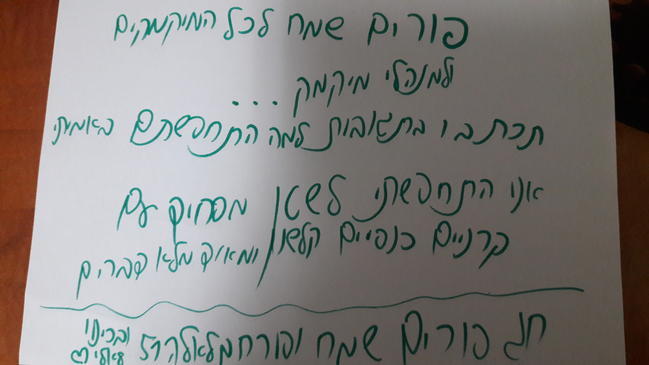 פורים שמח לכל המיקמקים
ולמנהלי מיקמק...
תכתבו בתגובות למה התחפשתם באמיתי
אני התחפשתי לשטן מפחיד עם
קרניים כנפיים קלשון ומאוד מלא דברים
חג פורים שמח ופורח